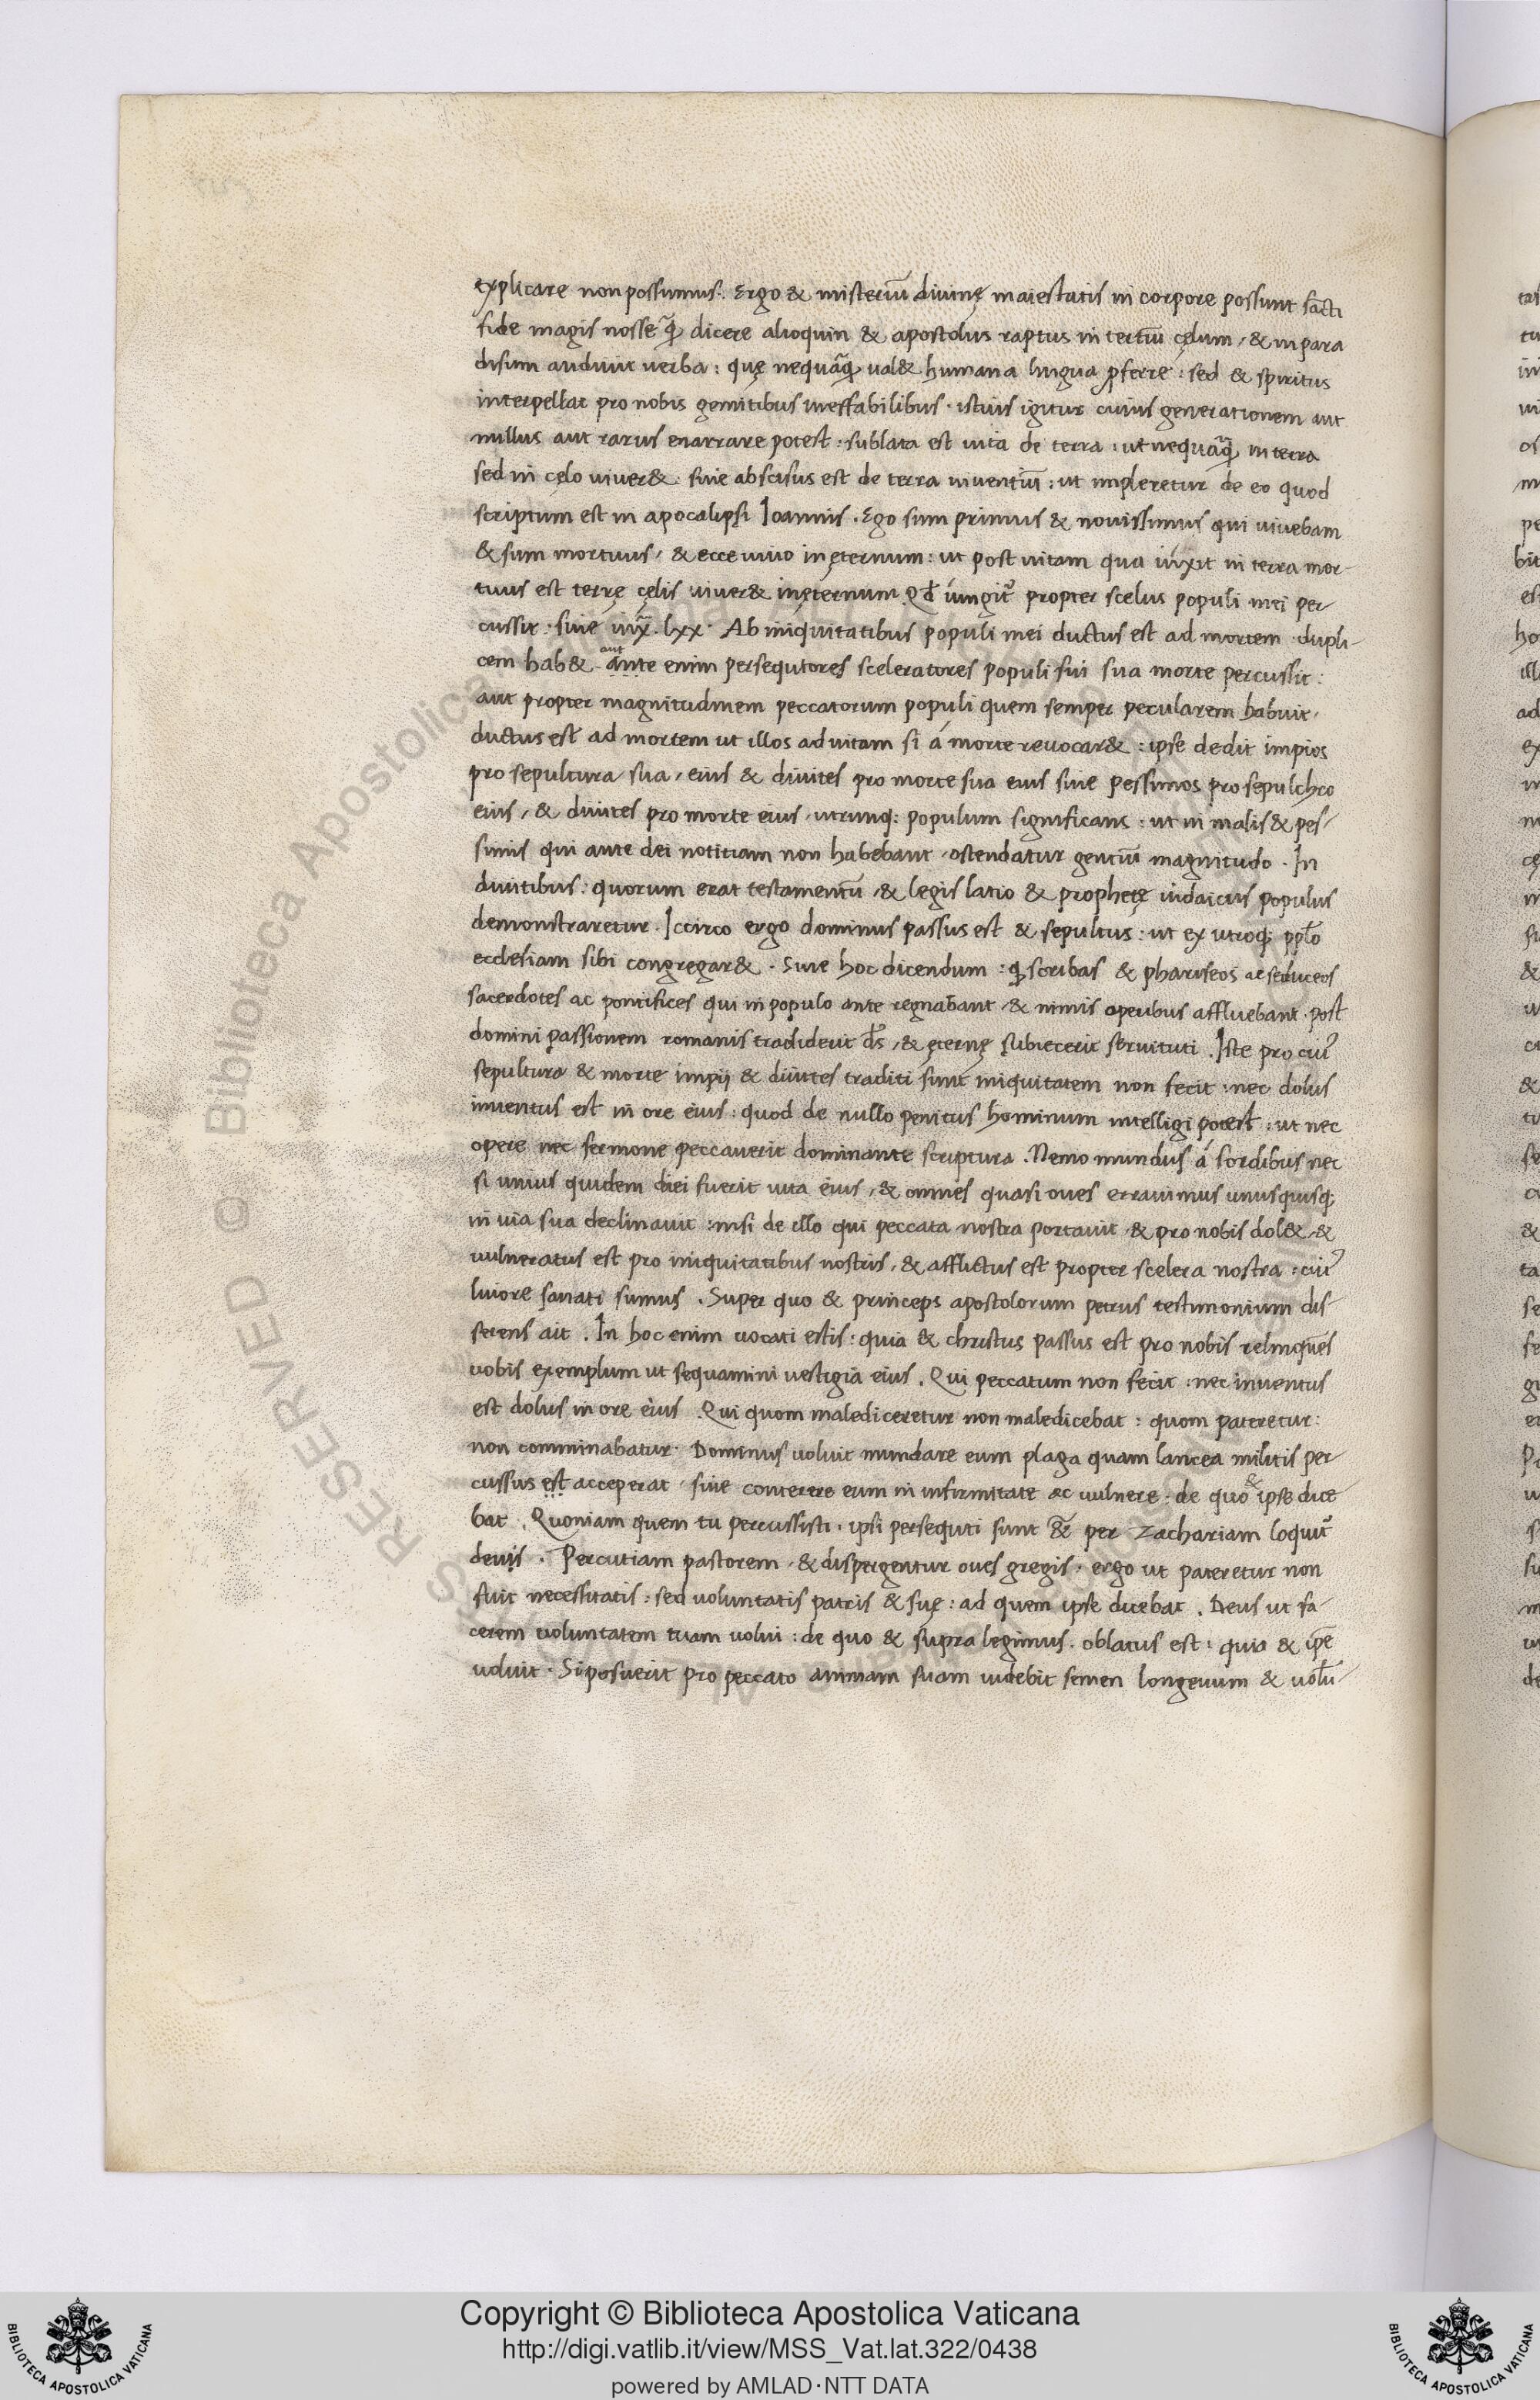 explicare non possumus. Ergo & misteriū diuinę maiestatis in corpore possunt sācti
fide magis nosse q̄ dicere alioquin & apostolus raptus in tertiū cęlum, & in para
disum audiuit uerba: quę nequāq̄ ual& humana lingua ꝓferre: sed & spiritus
interpellat pro nobis gemitibus ineffabilibus. istius igitur cuius generationem aut
nullus aut rarus enarrare potest: sublata est uita de terra: ut nequāq̄ in terra
sed in cęlo uiuer&. siue abscisus est de terra uiuentiū: ut impleretur de eo quod
scriptum est in apocalipsi Ioannis. Ego sum primus & nouissimus qui uiuebam
& sum mortuus, & ecce uiuo in ęternum: ut post uitam qua uixit in terra mor-
tuus est terrę cęlis uiuer& in ęternum. Qđ iungit᷑ propter scelus populi mei per
cussit. siue iux̄. lxx. Ab iniquitatibus populi mei ductus est ad mortem. dupli-
cem hab&. ante enim persequtores sceleratores populi sui sua morte percussit:
aut
aut propter magnitudinem peccatorum populi quem semper pecularem habuit,
ductus est ad mortem ut illos ad uitam si á morte reuocar&: ipse dedit impios
pro sepultura sua, eius & diuites pro morte sua eius siue pessimos pro sepulchro
eius, & diuites pro morte eius, utrunq; populum significans: ut in malis & pes-
simis qui ante dei notitiam non habebant, ostendatur gentiū magnitudo. In
diuitibus: quorum erat testamentū, & legis latio & prophetę iudaicus populus
demonstraretur. Iccirco ergo dominus passus est & sepultus: ut ex utroq; pp̄lo
ecclesiam sibi congregar&. Siue hoc dicendum: ꝙ scribas & phariseos ac seduceos
sacerdotes ac pontifices qui in populo ante regnabant & nimis opeibus affluebant. post
domini passionem romanis tradiderit d̄s, & ęternę subiecerit seruituti. Iste pro cui᷑
sepultura & morte impij & diuites traditi sunt iniquitatem non fecit: nec dolus
inuentus est in ore eius: quod de nullo penitus hominum intelligi potest: ut nec
opere nec sermone peccauerit dominante scriptura. Nemo mundus á sordibus nec
si unius quidem diei fuerit uita eius, & omnes quasi oues errauimus unusquisq;
in uia sua declinauit: nisi de illo qui peccata nostra portauit & pro nobis dol&, &
uulneratus est pro iniquitatibus nostris, & afflictus est propter scelera nostra: cui᷑
liuore sanati sumus. Super quo & princeps apostolorum petrus testimonium dis-
serens ait. In hoc enim uocati estis: quia & christus passus est pro nobis relinquēs
uobis exemplum ut sequamini uestigia eius. Qui peccatum non fecit: nec inuentus
est dolus in ore eius. Qui quom malediceretur non maledicebat: quom pateretur:
non comminabatur. Dominus uoluit mundare eum plaga quam lancea militis per-
cussus est acceperat. siue conterere eum in infirmitate ac uulnere: de quo ipse dice
&
bat. Quoniam quem tu percussisti. ipsi persequti sunt &̄ per Zachariam loquit᷑
denis. Percutiam pastorem, & dispergentur oues gregis. ergo ut pateretur non
fuit necessitatis: sed uoluntatis patris & suę: ad quem ipse dicebat. Deus ut fa-
cerem uoluntatem tuam uolui: de quo & supra legimus. oblatus est: quia & ip̄e
uoluit. Si posuerit pro peccato animam suam uidebit semen longeuum & uolū-
RESERVED © Biblioteca Apostolica
Copyright © Biblioteca Apostolica Vaticana
http://digi.vatlib.it/view/MSS_Vat.lat.322/0438
powered by AMLAD·NTT DATA
BIBLIOTECA APOSTOLICA VATICANA
BIBLIOTECA APOSTOLICA VATICANA